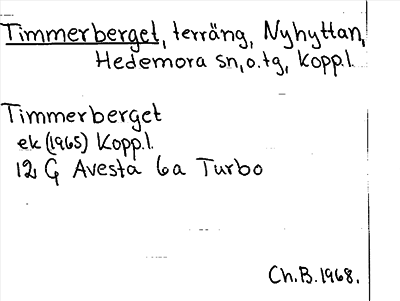 Timmerberget, terräng, Nyhyttan,
Hedemora sn, o. tg, Kopp.l.
Timmerberget
ek (1965) Kopp.l.
12 G Avesta 6a Turbo
Ch.B.1968.